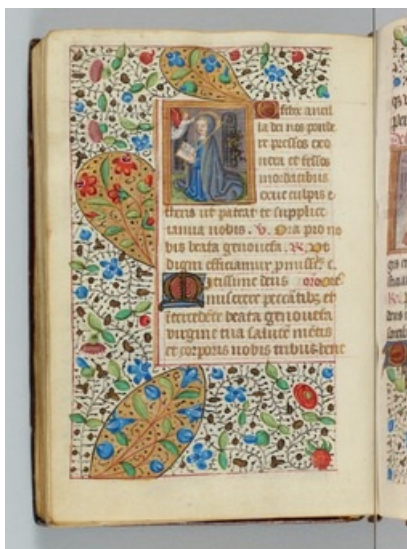 O felix ancil
la dei nos ponde
re pressos exo
nera et fessos
mordacibus
exue culpis e
theris ut pateat te supplice
ianua nobis. V. Ora pro no
bis beata genovefa. R. Vt
digni efficiamur pmiss. c.
Mitissime deus oro
miserere peccatibz et
intercedēte beata genovefa
virgine tua salutē mētis
et corporis nobis tribus bene